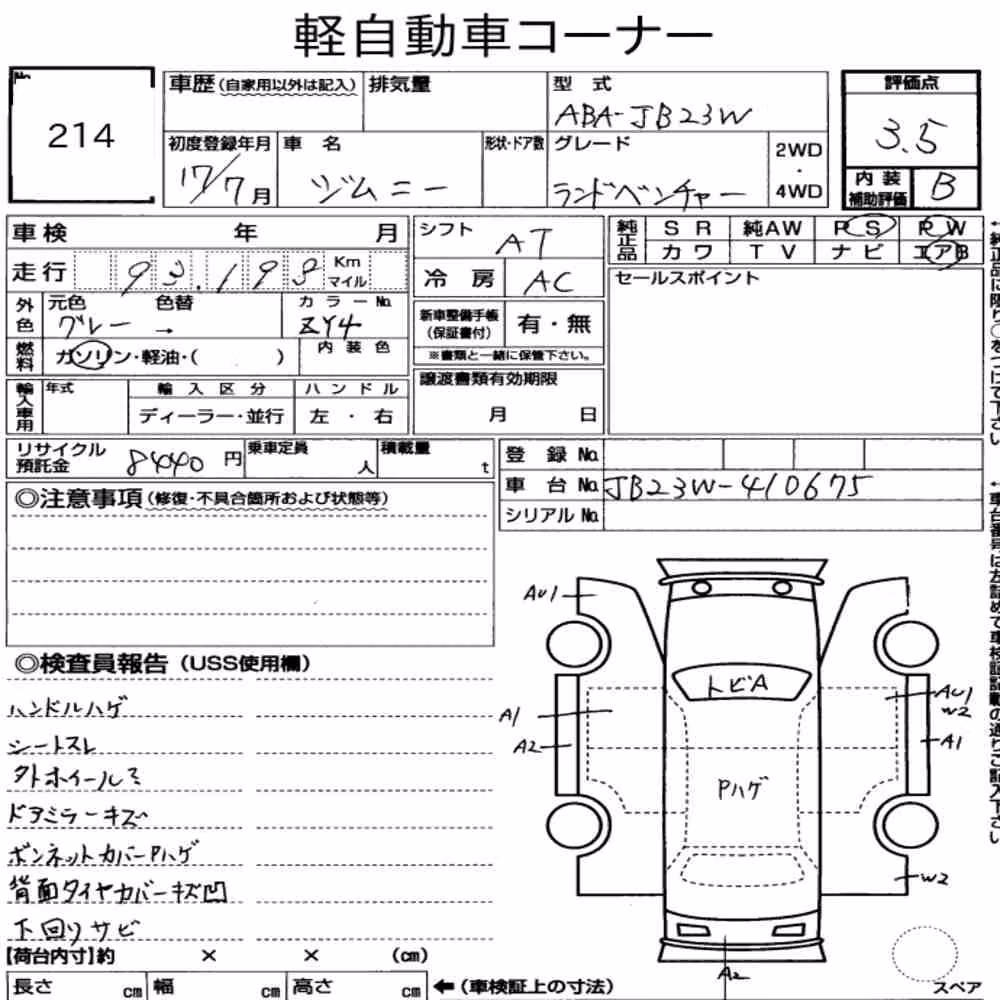 軽自動車コーナー
No.
214
車歴(自家用以外は記入) 排気量 型式
ABA-JB23W
評価点
3.5
初度登録年月 車名 形状・ドア数 グレード 2WD・4WD
17/7月 ジムニー ランドベンチャー
内装補助評価 B
車検 年 月
シフト AT
純正品 SR 純AW PS PW
カワ TV ナビ エアB
走行 93,198 Km マイル
冷房 AC
セールスポイント
外色 元色 色替 カラーNo.
グレー → ZY4
新車整備手帳(保証書付) 有・無
※書類と一緒に保管下さい。
燃料 ガソリン・軽油・( ) 内装色
輸入車用 年式 輸入区分 ハンドル
ディーラー・並行 左・右
譲渡書類有効期限
月 日
リサイクル預託金 8440円 乗車定員 人 積載量 t
登録No.
車台No. JB23W-410675
シリアルNo.
◎注意事項(修復・不具合箇所および状態等)
◎検査員報告(USS使用欄)
ハンドルハゲ
シートスレ
タトホイールミ
ドアミラーキズ
ボンネットカバーPハゲ
背面タイヤカバーキズ凹
下回りサビ
AU1
トビA
A1
A2
AU1
W2
A1
Pハゲ
W2
A2
スペア
【荷台内寸】約 × × (cm)
長さ cm 幅 cm 高さ cm ←(車検証上の寸法)
←純正品に限り○をつけて下さい
←車台番号は左詰めで車検証記載の通りご記入下さい